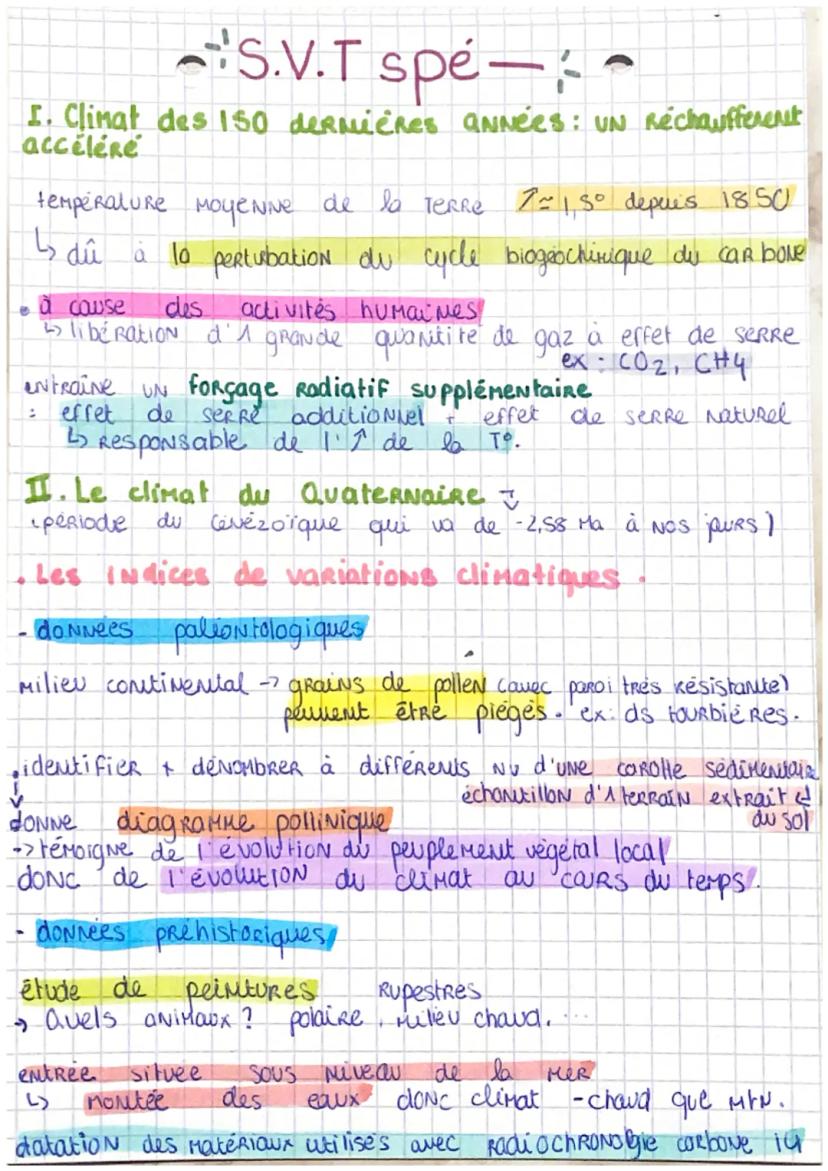 S.V.T spé
I. Climat des 150 dernières années : un réchauffement
accéléré
température moyenne de la Terre ↗ ≈ 1,5° depuis 1850
↳ dû à la perturbation du cycle biogéochimique du carbone
• à cause des activités humaines
↳ libération d'1 grande quantité de gaz à effet de serre
ex : CO2, CH4
entraîne un forçage radiatif supplémentaire
: effet de serre additionnel + effet de serre naturel
↳ responsable de l'↗ de la T°.
II. Le climat du Quaternaire
(période du Cénézoïque qui va de -2,58 Ma à nos jours)
. Les indices de variations climatiques .
- données paléontologiques
milieu continental → grains de pollen (avec paroi très résistante)
peuvent être piégés. ex: ds tourbières.
. identifier + dénombrer à différents nv d'une carotte sédimentaire
échantillon d'1 terrain extrait ↲
du sol
donne diagramme pollinique
-> témoigne de l'évolution du peuplement végétal local
donc de l'évolution du climat au cours du temps.
- données préhistoriques
étude de peintures rupestres
→ Quels animaux ? polaire, milieu chaud. ...
entrée située sous niveau de la mer
↳ montée des eaux donc climat - chaud que mtn.
datation des matériaux utilisés avec radiochronologie carbone 14